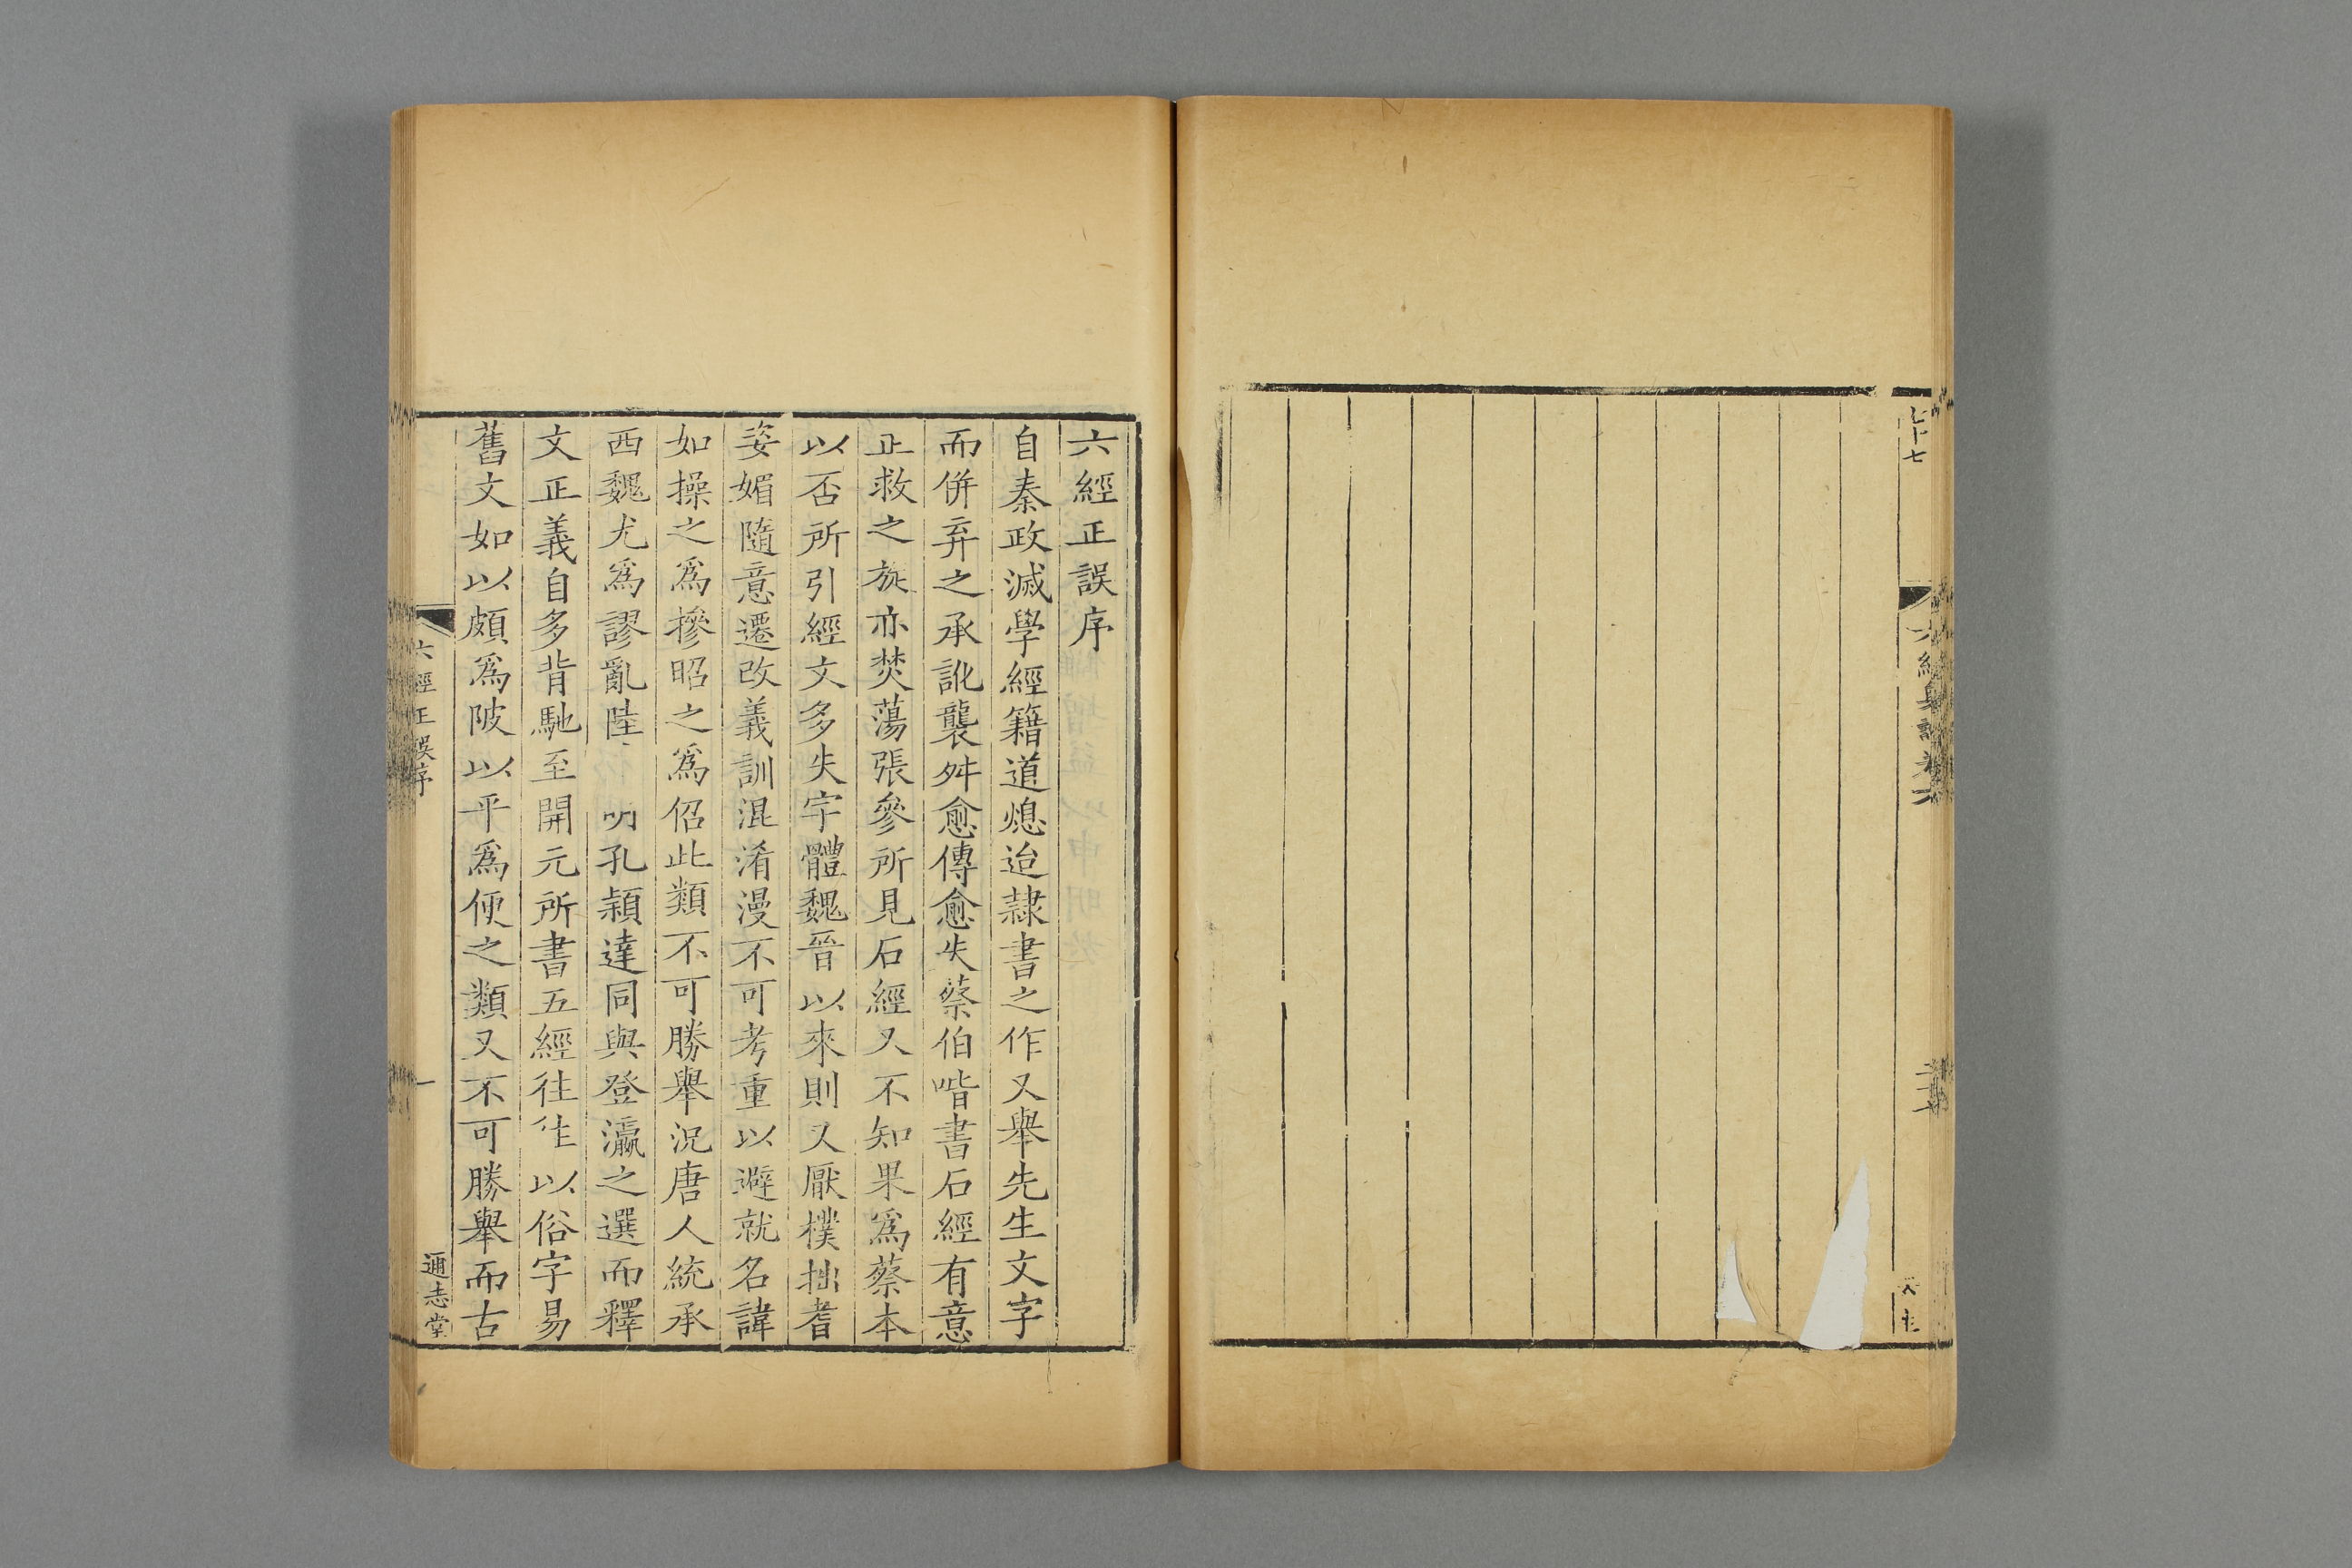 七十七
六經奧論卷六
六經正誤序
自秦政滅學經籍道熄迨隷書之作又舉先生文字
而併弃之承訛襲舛愈傳愈失蔡伯喈書石經有意
正救之旋亦焚蕩張參所見石經又不知果爲蔡本
以否所引經文多失字體魏晉以來則又厭樸拙耆
姿媚隨意遷改義訓混淆漫不可考重以避就名諱
如操之爲摻昭之爲佋此類不可勝舉況唐人統承
西魏尤爲謬亂陸 明孔穎達同與登瀛之選而釋
文正義自多背馳至開元所書五經往往以俗字易
舊文如以頗爲陂以平爲便之類又不可勝舉而古
六經正誤序
一
通志堂